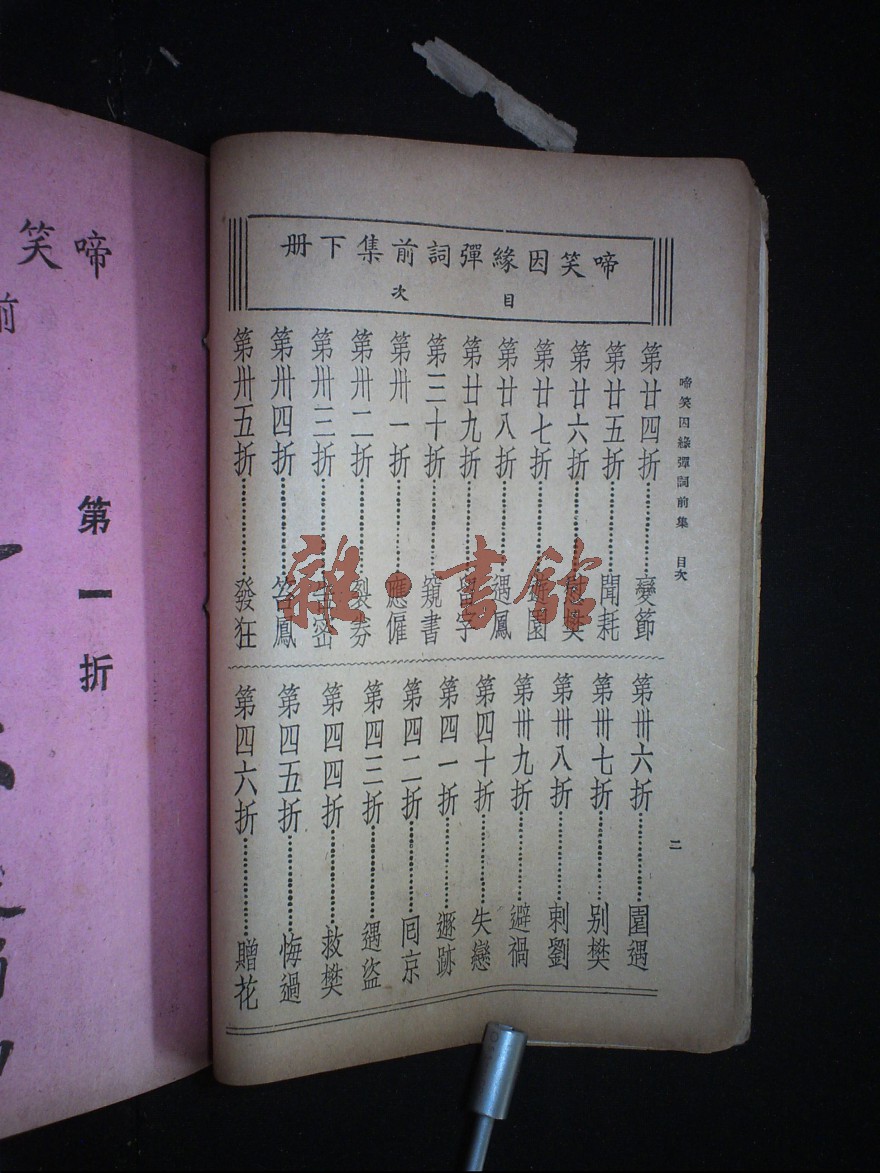 啼笑因緣彈詞前集 目次
二
啼笑因緣彈詞前集下册
目次
第廿四折 變節
第廿五折 聞耗
第廿六折 慰樊
第廿七折 遊園
第廿八折 遇鳳
第廿九折 留字
第三十折 窺書
第卅一折 應僱
第卅二折 裂券
第卅三折 密
第卅四折 笞鳳
第卅五折 發狂
第卅六折 園遇
第卅七折 别樊
第卅八折 刺劉
第卅九折 避禍
第四十折 失戀
第四一折 遯跡
第四二折 囘京
第四三折 遇盜
第四四折 救樊
第四五折 悔過
第四六折 贈花
雜·書館
啼笑
前
第一折